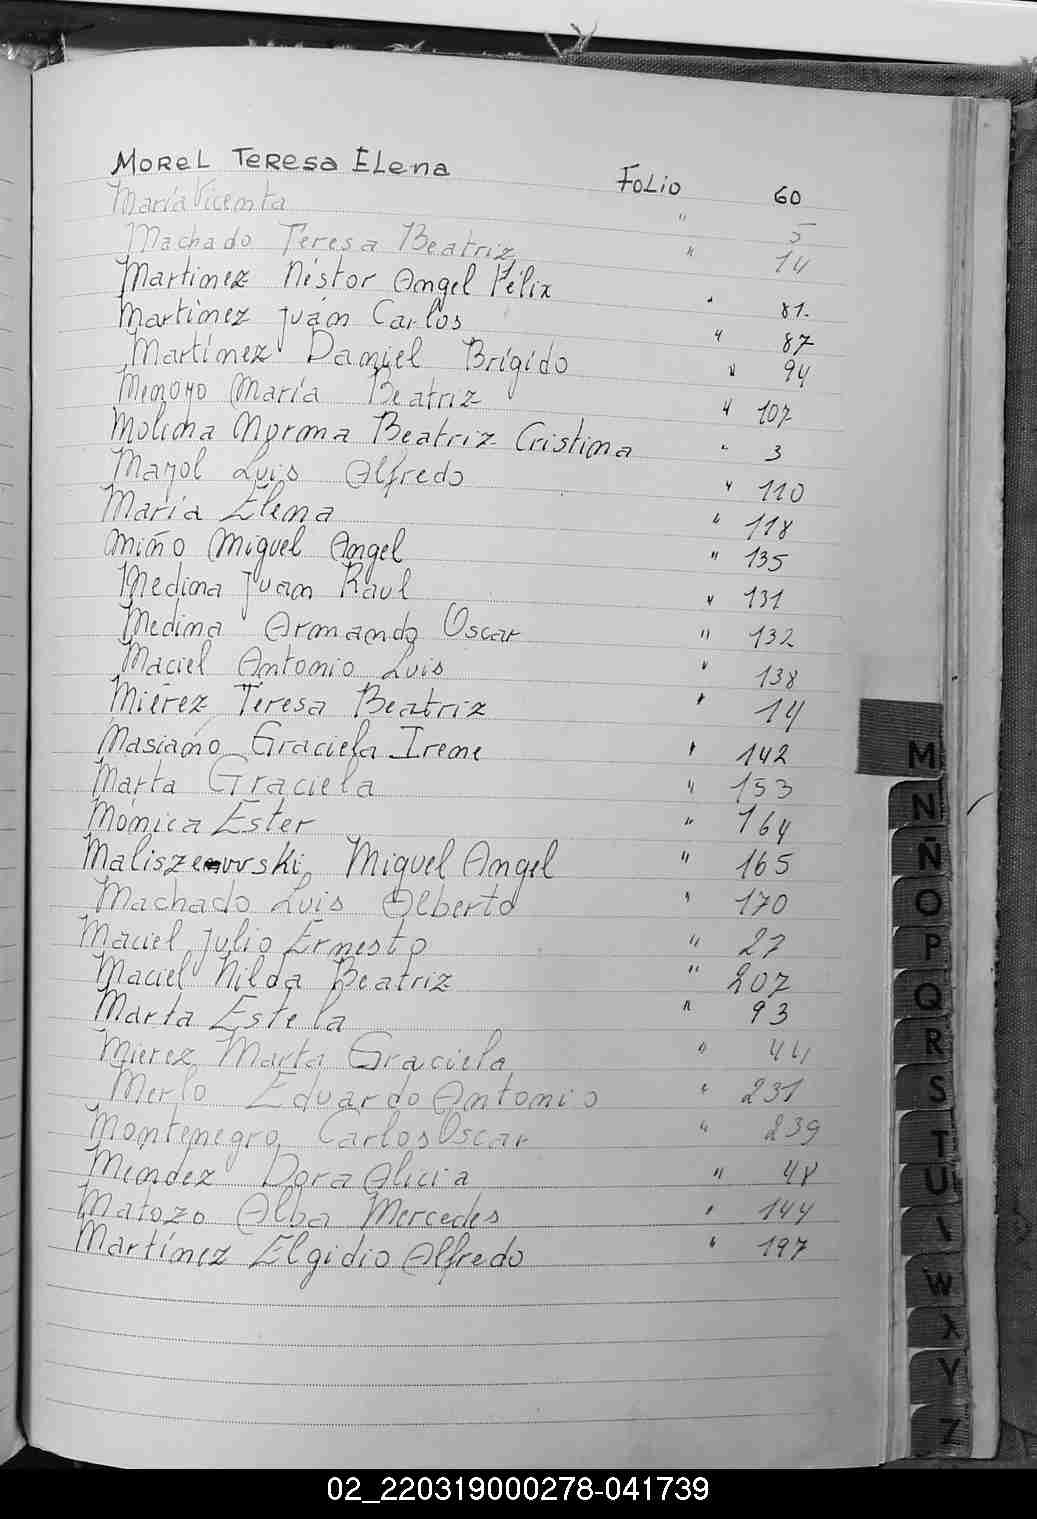 MOREL TERESA ELENA FOLIO 60
María Vicenta " 5
Machado Teresa Beatriz " 14
Martinez Néstor Angel Félix " 81-
Martínez Juan Carlos " 87
Martínez Daniel Brígido " 94
Menoyo María Beatriz " 107
Molina Norma Beatriz Cristina " 3
Mayol Luis Alfredo " 110
María Elena " 118
Miño Miguel Angel " 135
Medina Juan Raul " 131
Medina Armando Oscar " 132
Maciel Antonio Luis " 138
Mierez Teresa Beatriz " 14
Masiano Graciela Irene " 142
Marta Graciela " 153
Mónica Ester " 164
Maliszewski Miguel Angel " 165
Machado Luis Alberto " 170
Maciel Julio Ernesto " 27
Maciel Nilda Beatriz " 207
Marta Estela " 93
Mierez Marta Graciela " 44
Merlo Eduardo Antonio " 231
Montenegro Carlos Oscar " 239
Mendez Dora Alicia " 48
Matozo Alba Mercedes " 144
Martínez Elgidio Alfredo " 197
M
N
Ñ
O
P
Q
R
S
T
U
I
W
X
Y
Z
02_220319000278-041739